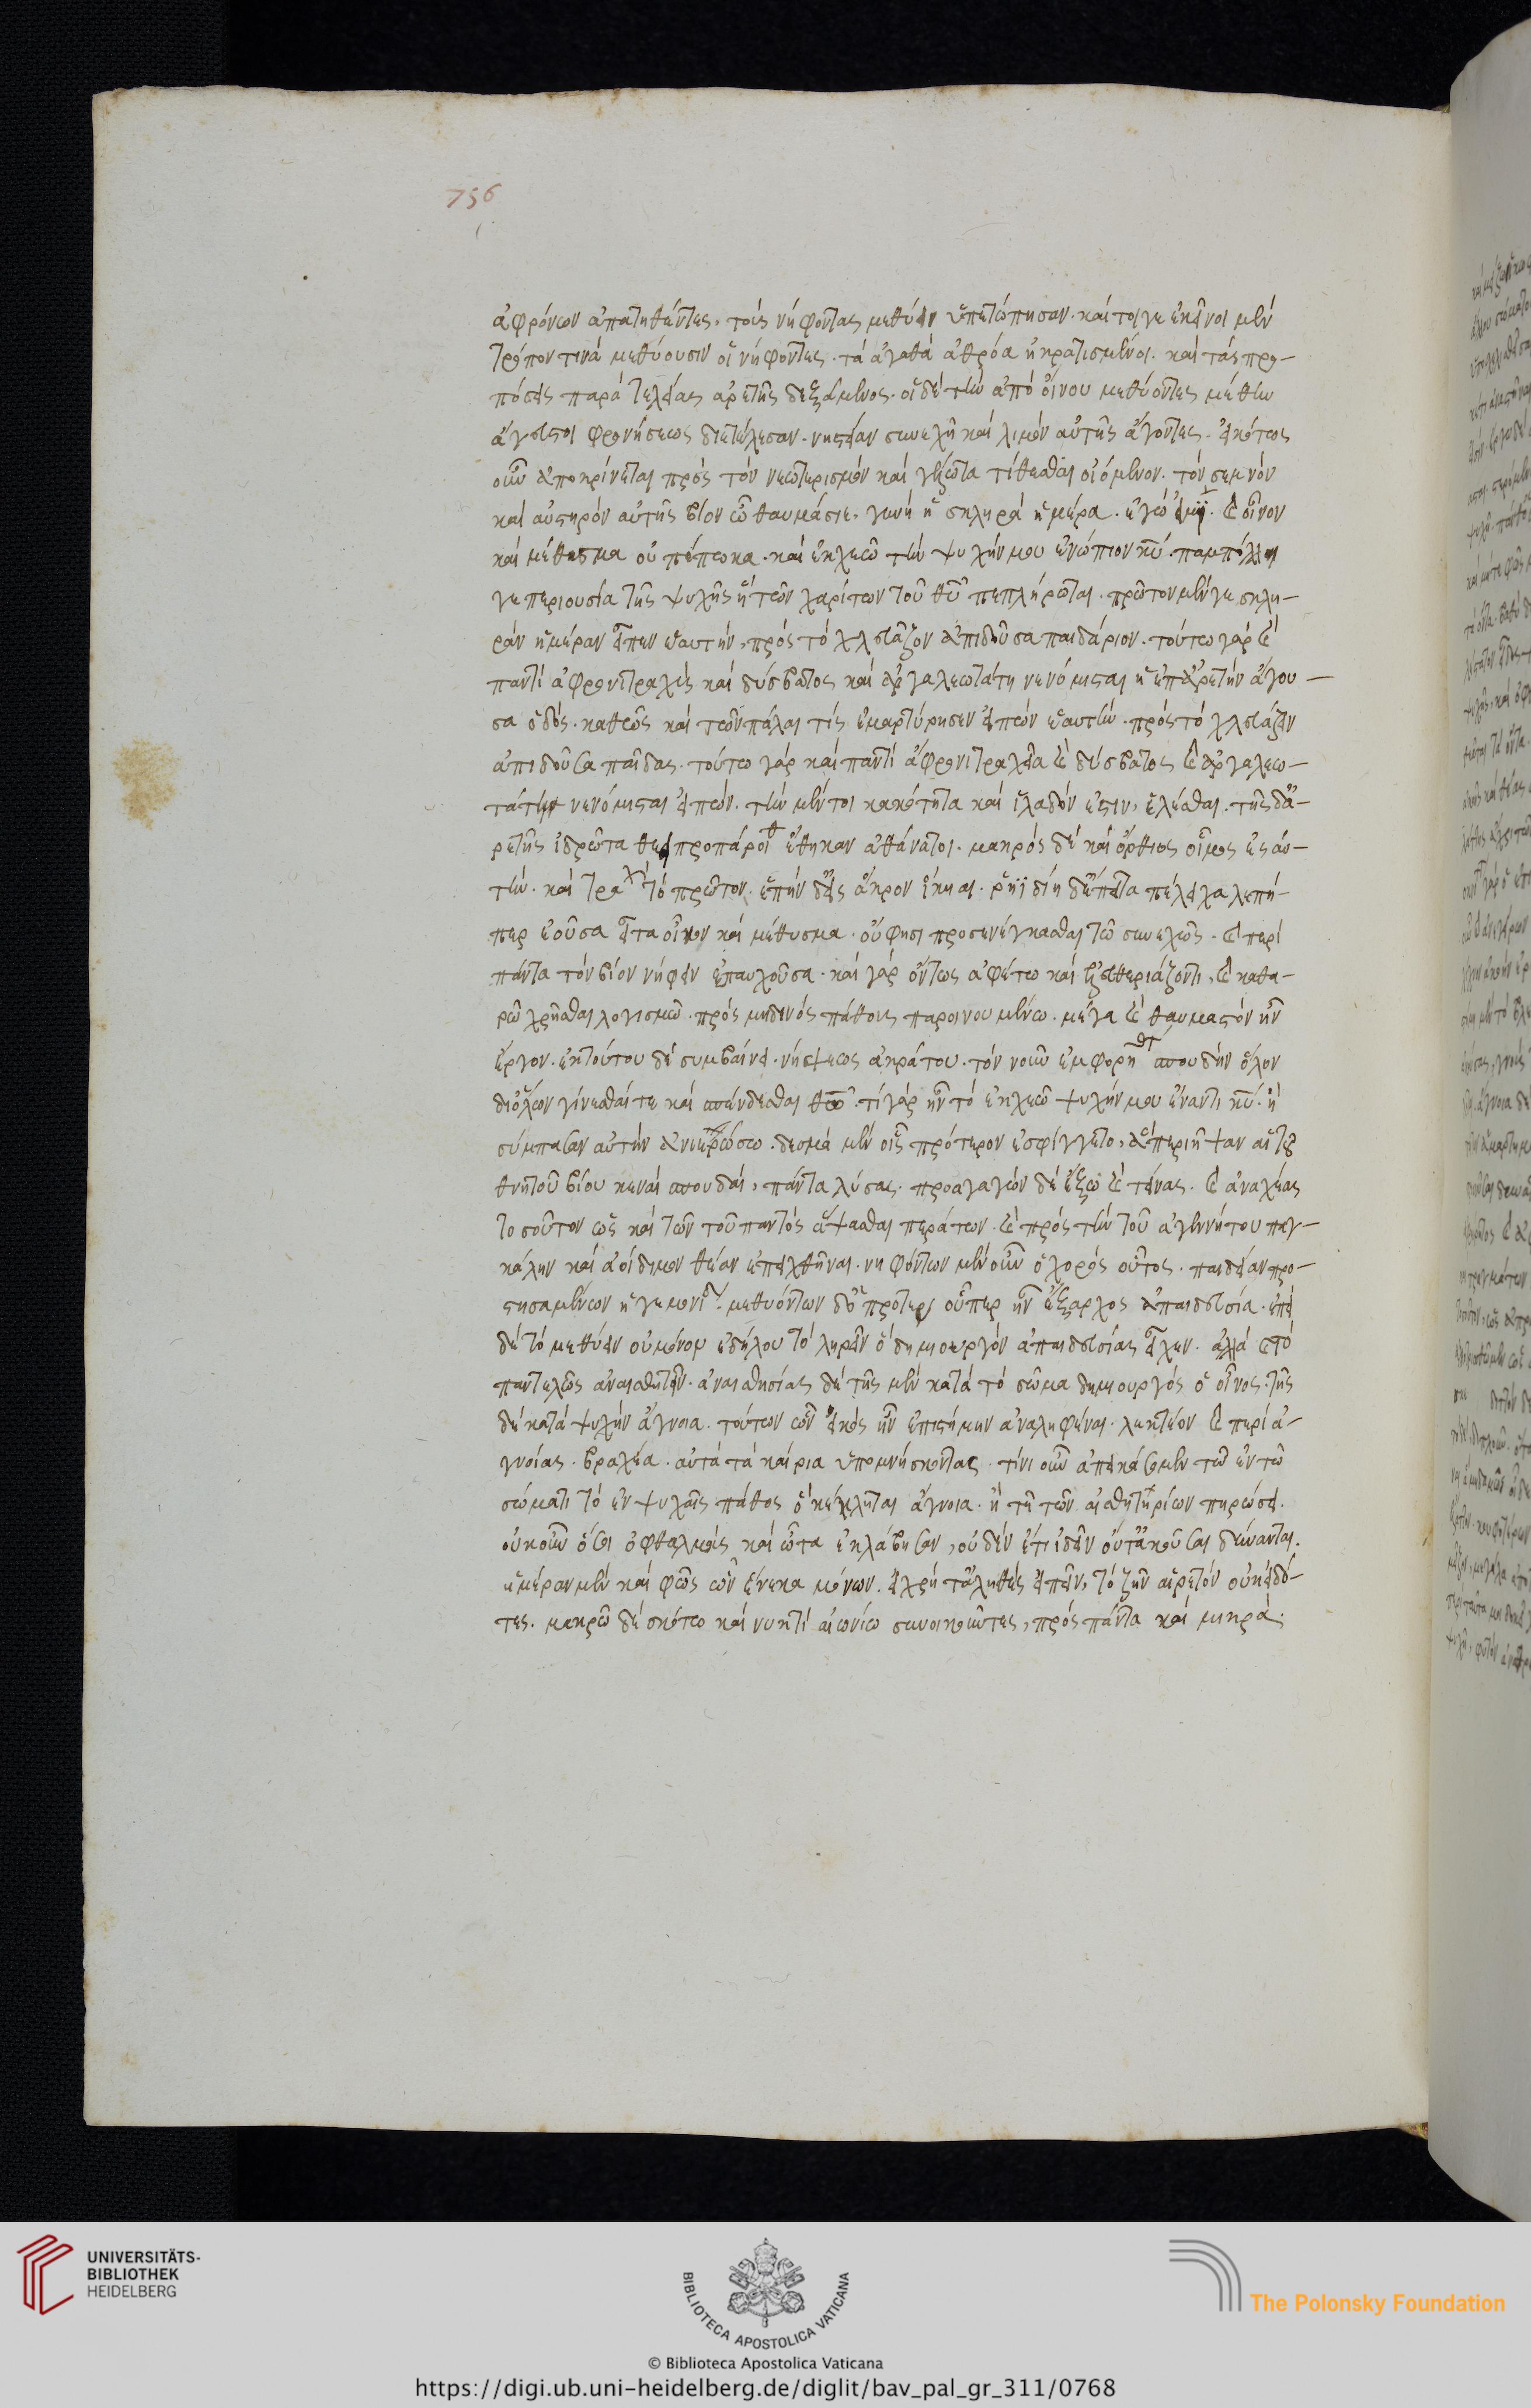 756
ἀφρόνων ἀπατηθέντες, τοὺς νήφοντας μεθύειν ὑπετόπησαν. καίτοιγε ἐκεῖνοι μὲν
τρόπον τινὰ μεθύουσιν οἱ νήφοντες. τὰ ἀγαθὰ ἀθρόα ἠκρατισμένοι. καὶ τὰς προ-
πόσεις παρὰ τελείας ἀρετῆς δεξάμενος. οἱ δὲ τὴν ἀπὸ οἴνου μεθύοντες μέθην
ἄγευστοι φρονήσεως διετέλεσαν. νηστείαν συνεχῆ καὶ λιμὸν αὐτῆς ἄγοντες. εἰκότως
οὖν ἀποκρίνεται πρὸς τὸν νεωτερισμὸν καὶ γέλωτα τίθεσθαι οἰόμενον. τὸν σεμνὸν
καὶ αὐστηρὸν αὐτῆς βίον ὦ θαυμάσιε, γυνὴ ἡ σκληρὰ ἡμέρα. ἐγώ εἰμι. καὶ οἶνον
καὶ μέθυσμα οὐ πέπωκα. καὶ ἐκχεῶ τὴν ψυχήν μου ἐνώπιον κυ. παμπόλλη
γε περιουσία τῆς ψυχῆς ἣ τῶν χαρίτων τοῦ θυ πεπλήρωται. πρῶτον μέν γε σκλη-
ρὰν ἡμέραν εἶπεν ἑαυτὴν, πρὸς τὸ χλευάζον ἀπιδοῦσα παιδάριον. τούτω γὰρ καὶ
παντὶ ἄφρονι τραχὺς καὶ δύσβατος καὶ ἀργαλεωτάτη νενόμισται ἡ ἐπ' ἀρετὴν ἄγου-
σα ὁδός. καθὼς καὶ τῶν πάλαι τίς ἐμαρτύρησεν εἰπὼν ἑαυτὴν. πρὸς τὸ χλευάζειν
ἀπιδοῦσα παῖδας. τούτω γὰρ καὶ παντὶ ἄφρονι τραχεῖα καὶ δύσβατος καὶ ἀργαλεω-
τάτη νενόμισται εἰπών. τὴν μέντοι κακότητα καὶ ἰλαδόν ἐστιν, ἑλέσθαι. τῆς δ' ἀ-
ρετῆς ἱδρῶτα θεοὶ προπάροιθ ἔθηκαν ἀθάνατοι. μακρὸς δὲ καὶ ὄρθιος οἶμος ἐς αὐ-
τὴν. καὶ τραχὺ τὸ πρῶτον. ἐπὴν δ' εἰς ἄκρον ἵκηαι. ῥηϊδίη δ' ἔπειτα πέλει χαλεπή-
περ ἐοῦσα εἶτα οἶνον καὶ μέθυσμα. οὔ φησι προσενέγκασθαι τῶ συνεχῶς. καὶ περὶ
πάντα τὸν βίον νήφειν ἐπαυχοῦσα. καὶ γὰρ ὄντως ἀφέτω καὶ ἐλευθεριάζοντι, καὶ καθα-
ρῶ χρῆσθαι λογισμῶ. πρὸς μηδενὸς πάθους παροινουμένω. μέγα καὶ θαυμαστὸν ἦν
ἔργον. ἐκ τούτου δὲ συμβαίνει. νήψεως ἀκράτου. τὸν νοῦν ἐμφορηθέντα σπουδὴν ὅλον
δι' ὅλων γίνεσθαί τε καὶ σπένδεσθαι θω. τί γὰρ ἦν τὸ ἐκχεῶ ψυχήν μου ἔναντι κυ. ἢ
σύμπασαν αὐτὴν ἀνιερώσω. δεσμὰ μὲν οἷς πρότερον ἐσφίγγετο, ἃ περιῆψαν αἱ τοῦ
θνητοῦ βίου κεναὶ σπουδαὶ, πάντα λύσας. προαγαγὼν δὲ ἔξω καὶ τείνας. καὶ ἀναχέας
τοσοῦτον ὡς καὶ τῶν τοῦ παντὸς ἅψασθαι περάτων. καὶ πρὸς τὴν τοῦ ἀγεννήτου παγ-
κάλην καὶ ἀοίδιμον θέαν ἐπειχθῆναι. νηφόντων μὲν οὖν ὁ χορὸς οὗτος. παιδείαν προ-
στησαμένων ἡγεμονί. μεθυόντων δ' ὁ πρότερος οὗπερ ἦν ἔξαρχος ἀπαιδευσία. ἐπεὶ
δὲ τὸ μεθύειν οὐ μόνον ἐδήλου τὸ ληρεῖν ὃ δημιουργὸν ἀπαιδευσίας εἶχεν. ἀλλὰ καὶ τὸ
παντελῶς ἀναισθητεῖν. ἀναισθησίας δὲ τῆς μὲν κατὰ τὸ σῶμα δημιουργὸς ὁ οἶνος. τῆς
δὲ κατὰ ψυχὴν ἄγνοια. τούτων ὧν εἰκὸς ἦν ἐπιστήμην ἀναληφέναι. λεκτέον καὶ περὶ ἀ-
γνοίας. βραχέα. αὐτὰ τὰ καίρια ὑπομνήσκοντας. τίνι οὖν ἀπεικάσομεν τῶ ἐν τῶ
σώματι τὸ ἐν ψυχαῖς πάθος ὃ κέκληται ἄγνοια. ἢ τῆ τῶν αἰσθητηρίων πηρώσει.
οὐκοῦν ὅσοι ὀφθαλμοὺς καὶ ὦτα ἐκλάβησαν, οὐδὲν ἔτι ἰδεῖν οὔτ' ἀκοῦσαι δύνανται.
ἡμέραν μὲν καὶ φῶς ὧν ἕνεκα μόνων. εἰ χρὴ τἀληθὲς εἰπεῖν, τὸ ζῆν αἱρετὸν οὐκ εἰδό-
τες. μακρῶ δὲ σκότω καὶ νυκτὶ αἰωνίω συνοικοῦντες, πρὸς πάντα καὶ μικρὰ.
UNIVERSITÄTS-
BIBLIOTHEK
HEIDELBERG
BIBLIOTECA APOSTOLICA VATICANA
The Polonsky Foundation
© Biblioteca Apostolica Vaticana
https://digi.ub.uni-heidelberg.de/diglit/bav_pal_gr_311/0768